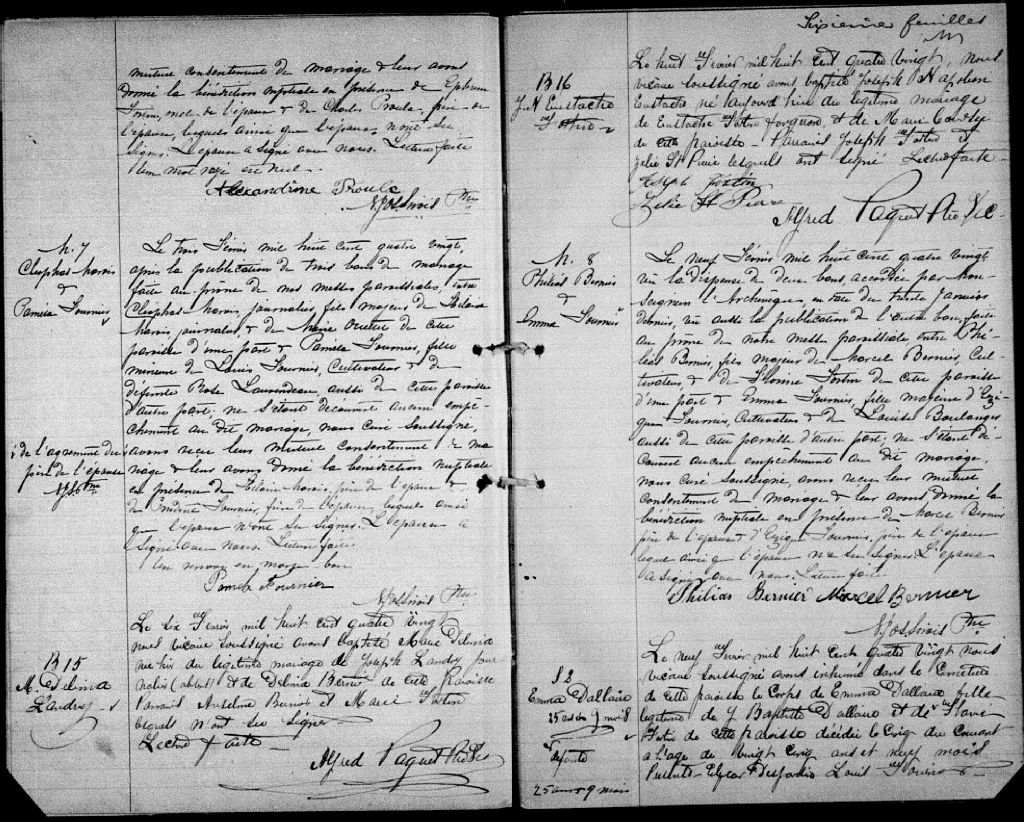 mutuel consentement de mariage & leur avons
donné la bénédiction nuptiale en présence de Ephrem
Fortin, de l'époux & de Charles Proulx, père de
l'épouse, lesquels ainsi que l'époux n'ont su
signer. L'épouse a signé avec nous. Lecture faite
Un mot rayé est nul.
Alexandrine Proulx
Ptre
M. 7
Cléophas Morin
&
Paméla Fournier
Le trois Février mil huit cent quatre vingt,
après la publication de trois bans de mariage
faite au prône de nos messes paroissiales, entre
Cléophas Morin journalier, fils majeur de Hilaire
Morin journalier & de Marie de cette
paroisse d'une part & Paméla Fournier, fille
mineure de Louis Fournier, Cultivateur & de
défunte Rose Laverdeau, aussi de cette paroisse
d'autre part; ne s'étant découvert aucun empê-
chement au dit mariage, nous Curé soussigné,
de l'agrément du
père de l'épouse
Ptre
avons reçu leur mutuel consentement de ma
riage & leur avons donné la bénédiction nuptiale
en présence de Hilaire Morin, père de l'époux &
de Prudent Fournier, frère de l'épouse, lesquels ainsi
que l'époux n'ont su signer. L'épouse a
signé avec nous. Lecture faite
Un renvoi en marge bon
Pamela Fournier
Ptre
B 15
M. Delima
Landry
Le six Février mil huit cent quatre vingt
nous vicaire soussigné avons baptisé Marie Délima
née hier du légitime mariage de Joseph Landry jour
nalier (absent) et de Delima Bernier de cette paroisse
Parrain Anselme Bernier et Marie Fortin
lesquels n'ont su signer
Lecture faite
Alfred Paquet Ptre Vic
Sixième feuillet
B 16
J. N Eustache
Fortin
Le huit Février mil huit cent quatre vingt, nous
vicaire soussigné avons baptisé Joseph Napoléon
Eustache né aujourd'hui du légitime mariage
de Eustache Fortin forgeron & de Marie
de cette paroisse - Parrain Joseph Fortin et
Zélie St Pierre lesquels ont signé Lecture faite
Joseph Fortin
Zelie St Pierre
Alfred Paquet Ptre Vic
M. 8
Philias Bernier
&
Emma Fournier
Le neuf Février mil huit cent quatre vingt
vu la dispense de deux bans accordée par Mon-
seigneur l'Archevêque, en date du trente Janvier
dernier, vu aussi la publication de l'autre ban, faite
au prône de notre messe paroissiale entre Phi-
léas Bernier, fils majeur de Marcel Bernier, Cul-
tivateur, & de Fortin de cette paroisse
d'une part & Emma Fournier, fille majeure d'Ezé-
Fournier, Cultivateur & de Louise Boulanger
aussi de cette paroisse d'autre part; ne s'étant dé-
couvert aucun empêchement au dit mariage,
nous Curé soussigné, avons reçu leur mutuel
consentement de mariage & leur avons donné la
bénédiction nuptiale en présence de Marcel Bernier
père de l'époux & d' Fournier, père de l'épouse
lequel ainsi que l'épouse n'a su signer. L'époux
a signé avec nous. Lecture faite
Philias Bernier Marcel Bernier
Ptre
S 2
Emma Dallaire
25 ans 9 mois
défunte
25 ans 9 mois
Le neuf Février mil huit cent quatre vingt nous
vicaire soussigné avons inhumé dans le Cimetière
de cette paroisse le corps de Emma Dallaire fille
légitime de J Baptiste Dallaire et de Flavie
Fortin de cette paroisse décédée le cinq du courant
à l'age de vingt cinq ans et neuf mois
Présents - Elzear Desjardins Louis Fournier